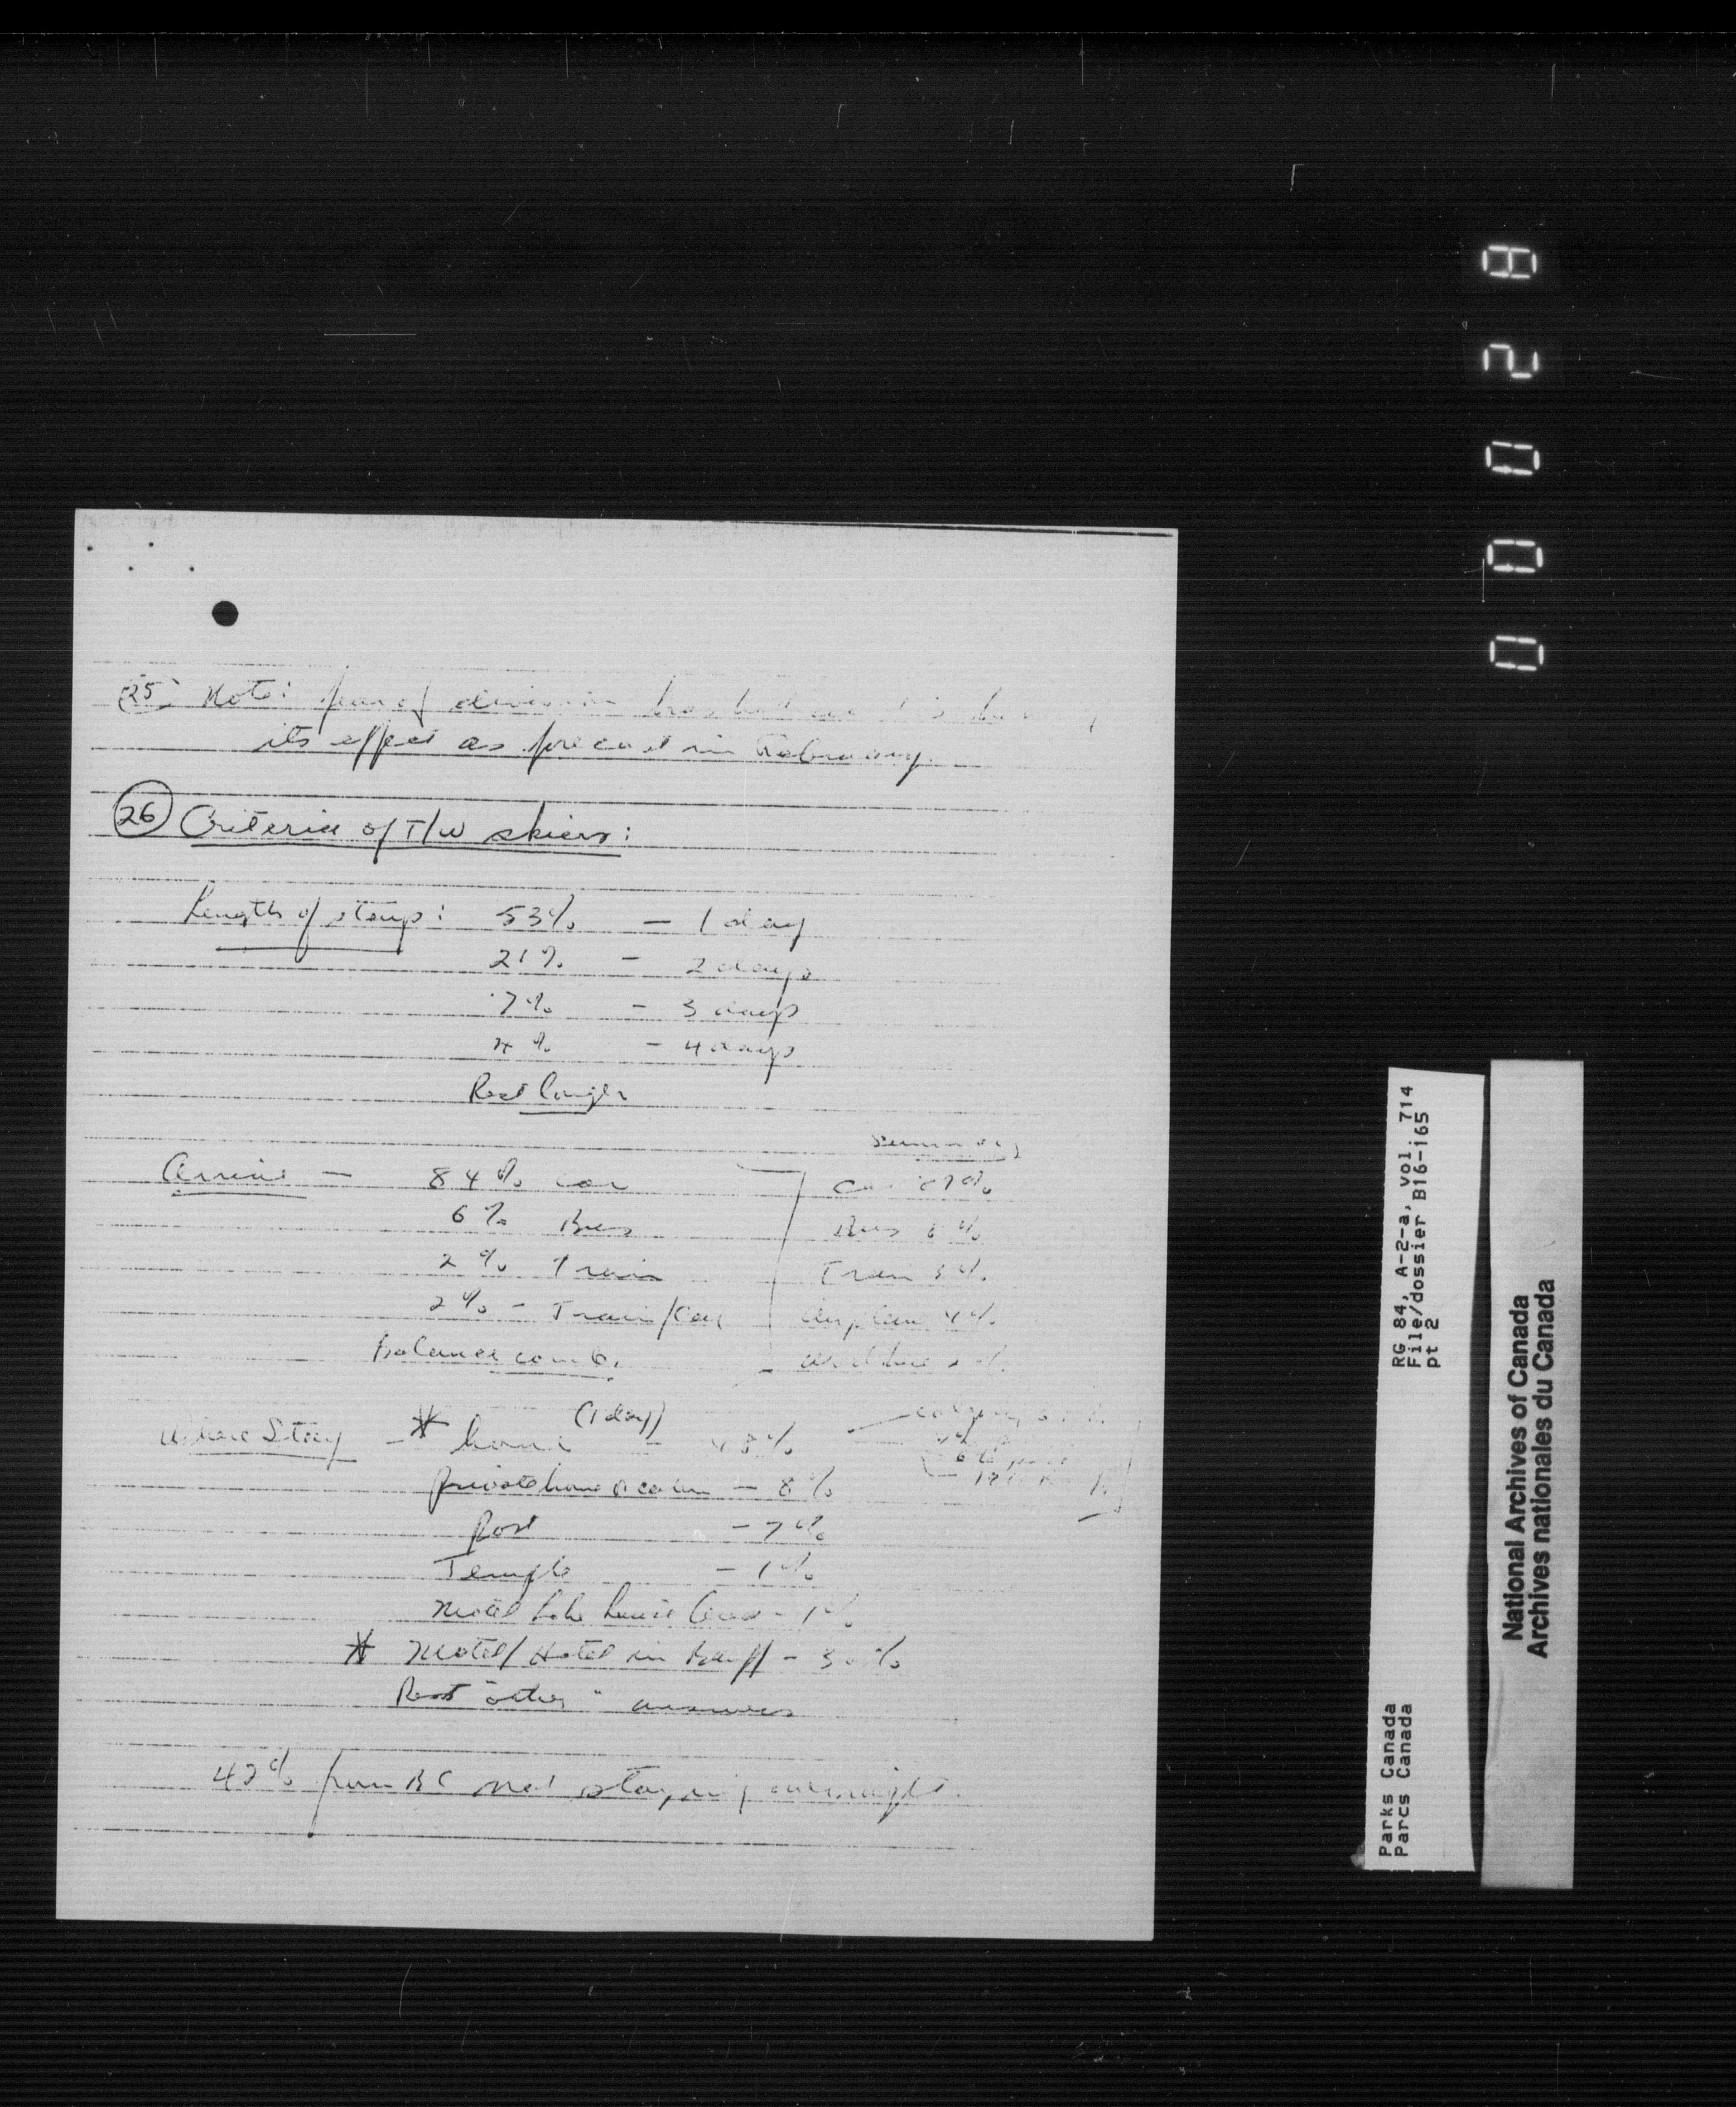 25 Note: fear of division has had
its effect as forecast in February.
26 Criteria of T/W skiers:
Length of stay: 53% — 1 day
21% — 2 days
7% — 3 days
4% — 4 days
Rest longer
Summary
Arrive — 84% car
Car %
6% Bus
Bus %
2% Train
Train %
2% - Train/Car
Airplane 4%
Balance comb.
Where Stay - * home (1 day) - 48%
Calgary
private home or cabin - 8%
Post - 7%
Temple - 1%
Motel Lake Louise Area - 1%
* Motel/Hotel in Banff - 30%
Rest "other" answers
42% from BC not staying overnight.
00028
RG 84, A-2-a, vol. 714
File/dossier B16-165
pt 2
Parks Canada
Parcs Canada
National Archives of Canada
Archives nationales du Canada